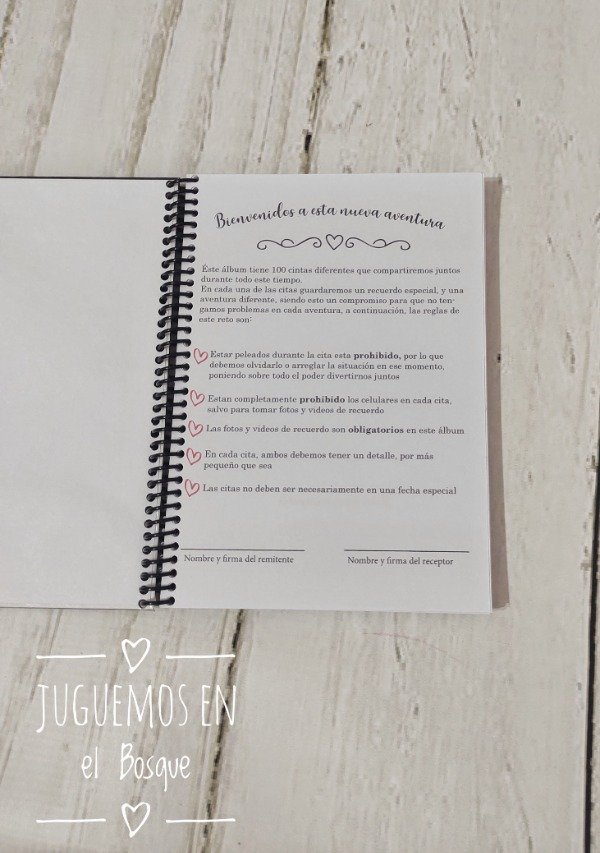 Bienvenidos a esta nueva aventura
Éste álbum tiene 100 cintas diferentes que compartiremos juntos
durante todo este tiempo.
En cada una de las citas guardaremos un recuerdo especial, y una
aventura diferente, siendo esto un compromiso para que no ten-
gamos problemas en cada aventura, a continuación, las reglas de
este reto son:
Estar peleados durante la cita esta prohibido, por lo que
debemos olvidarlo o arreglar la situación en ese momento,
poniendo sobre todo el poder divertirnos juntos
Estan completamente prohibido los celulares en cada cita,
salvo para tomar fotos y videos de recuerdo
Las fotos y videos de recuerdo son obligatorios en este álbum
En cada cita, ambos debemos tener un detalle, por más
pequeño que sea
Las citas no deben ser necesariamente en una fecha especial
Nombre y firma del remitente Nombre y firma del receptor
JUGUEMOS EN
el Bosque